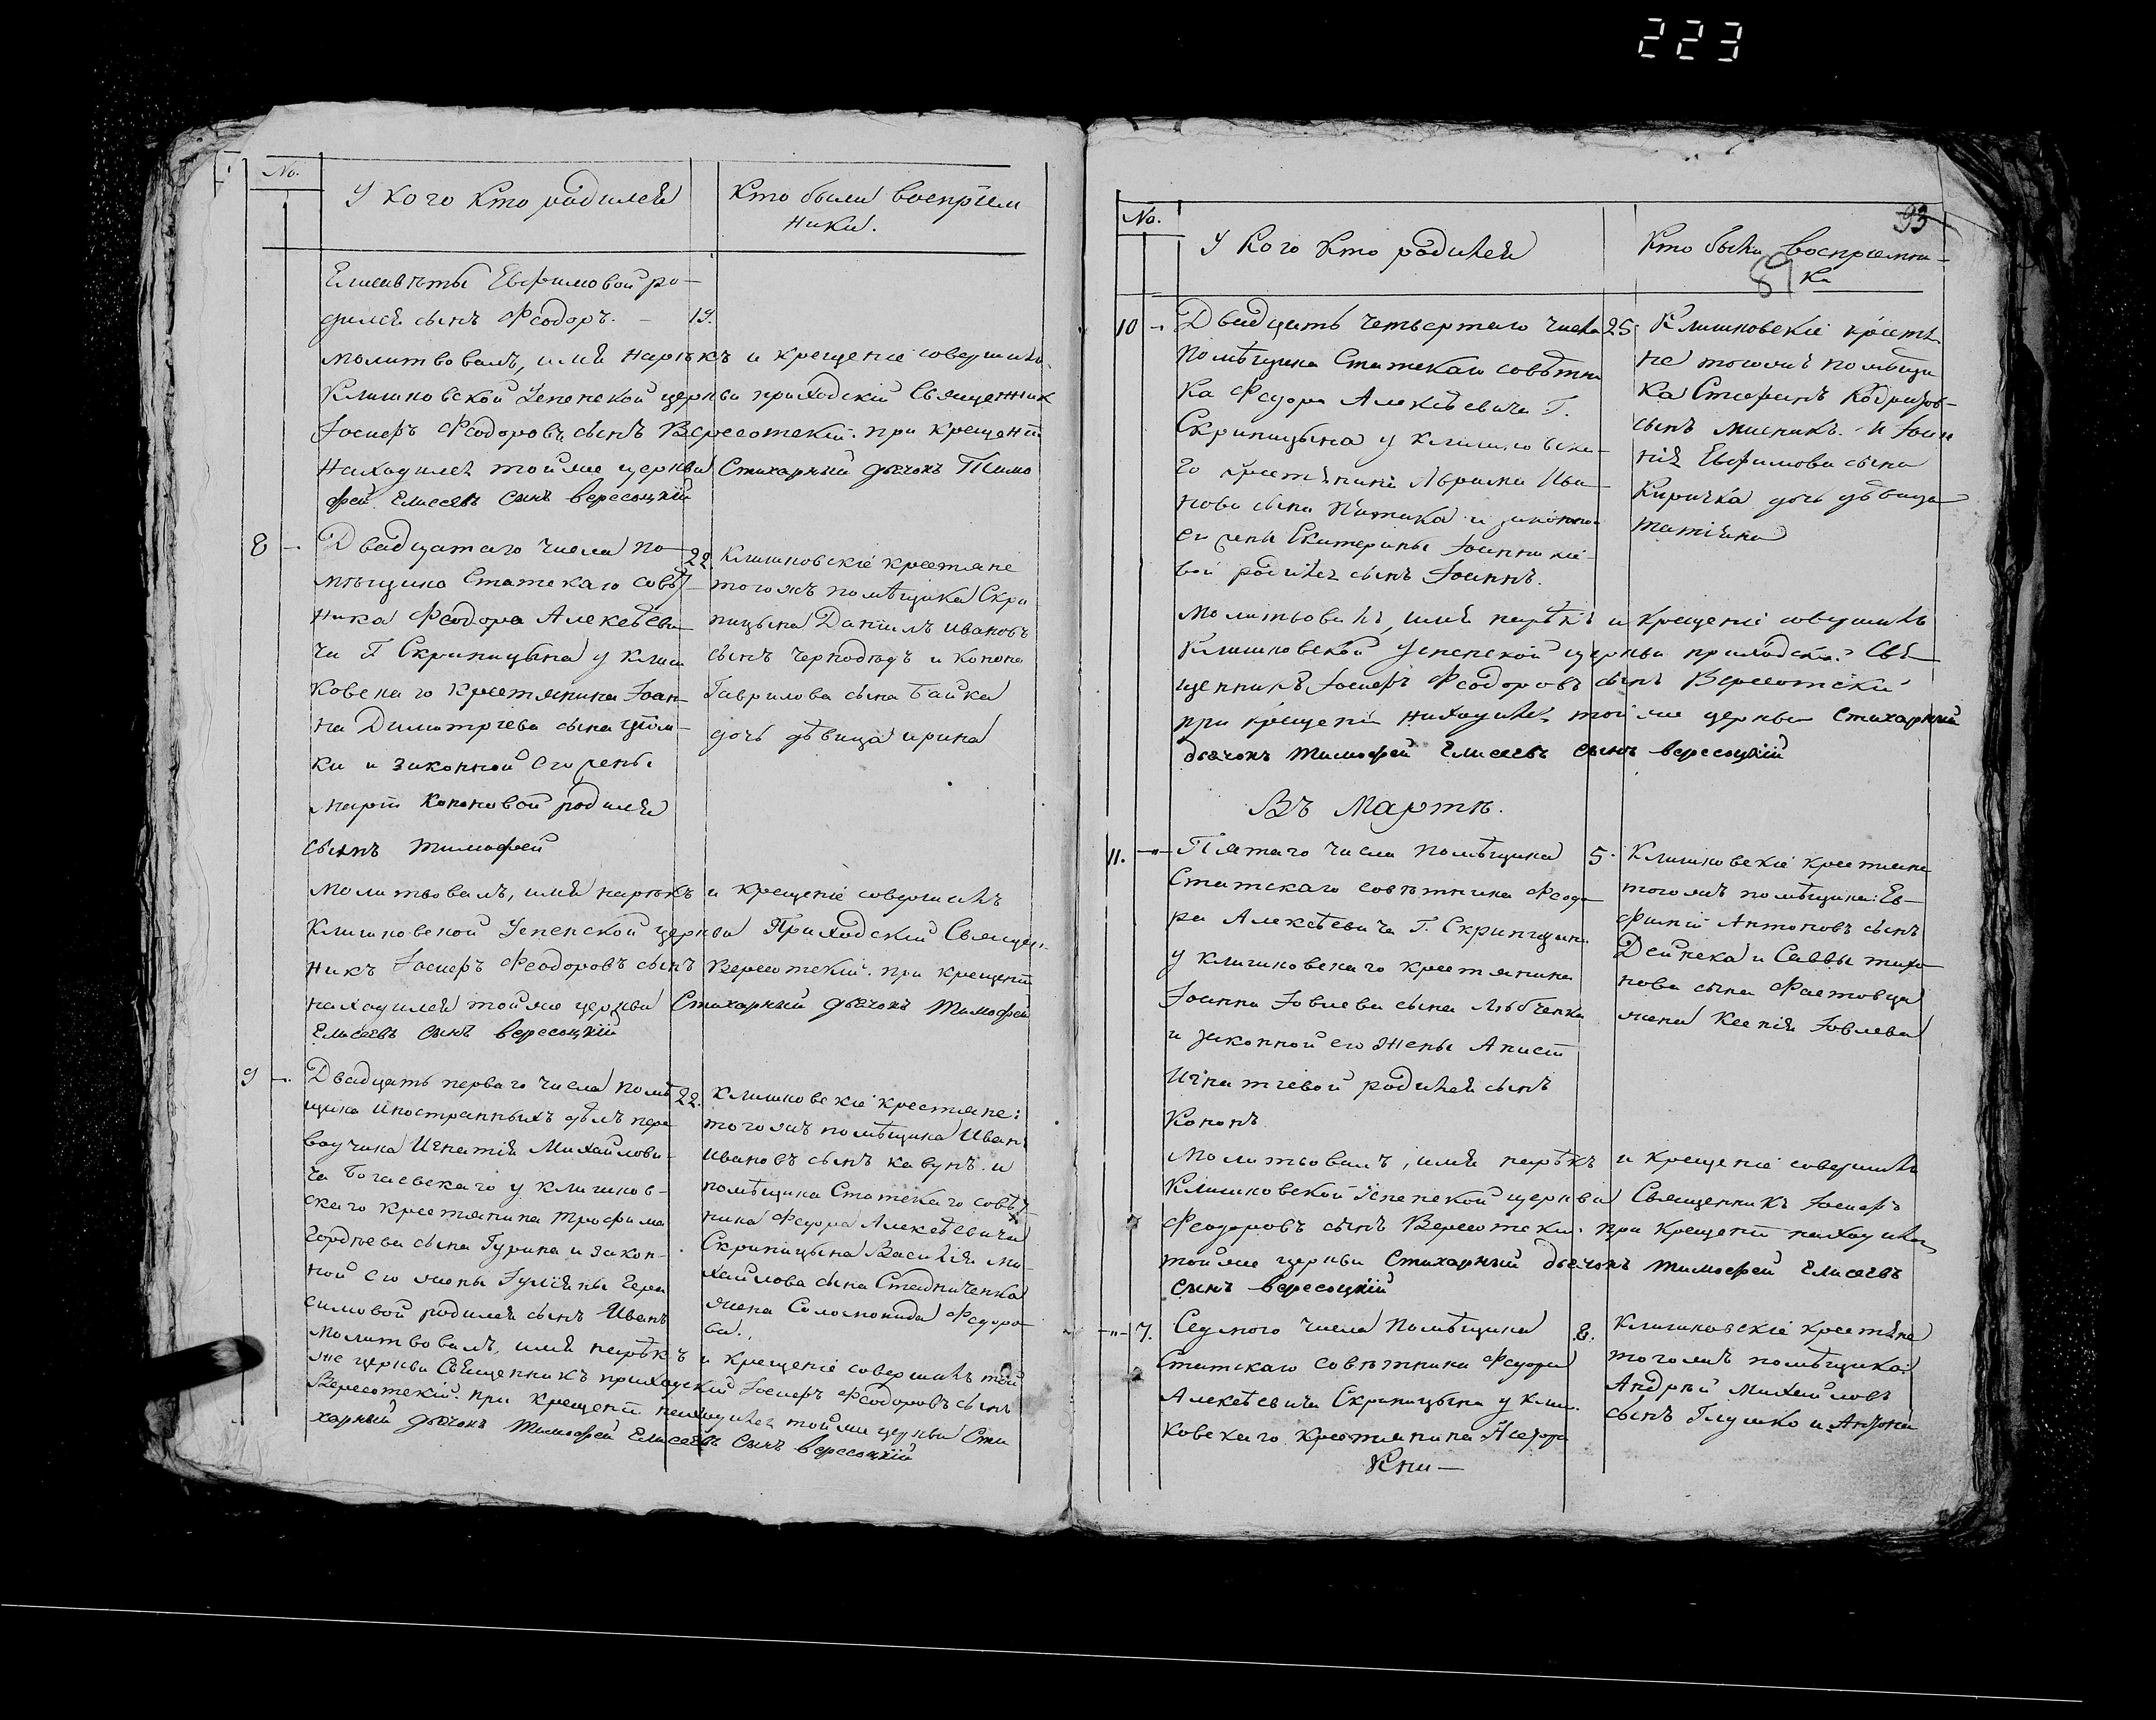 223
No.
У кого кто родился
Кто были воспріем
ники.
Елисавѣты Евфимовой ро-
дился сынъ Феодоръ. — 19.
молитвовалъ, имя нарѣкъ и крещеніе совершилъ
Клишковской Успенской церкви приходскій Священникъ
Іосифъ Феодоровъ сынъ Вересотскій. при крещеніи
находился тойже церкви Стихарный дьячокъ Тимо
фей Елисеевъ сынъ вересоцкій
8 — Двадцатаго числа по-
мѣщика Статскаго совѣт-
ника Феодора Алексѣеви
ча Г Скрипицына у клиш
ковскаго крестянина Іоан-
на Димитріева сына
ки и законной его жены
марѳи Кононовой родился
сынъ тимофей
22. Клишковскіе крестяне
тогожъ помѣщика Скри
пицына Даніилъ Ивановъ
сынъ Чернодѣдъ и Конона
Гаврилова сына Байка
дочь дѣвица ирина
молитвовалъ, имя нарѣкъ и крещеніе совершилъ
Клишковской Успенской церкви Приходскій Священ-
никъ Іосифъ Феодоровъ сынъ Вересотскій. при крещеніи
находился тойже церкви Стихарный дьячокъ Тимофей
Елисеевъ сынъ вересоцкій
9 — Двадцать перваго числа помѣ
щика Иностранныхъ дѣлъ пере
водчика Игнатія Михайлови-
ча Богаевскаго у клишков-
скаго крестянина трофима
Гордѣева сына Гурина и закон-
ной его жены Іуліяны Гера
симовой родился сынъ Иванъ
22. Клишковскіе крестяне:
тогожъ помѣщика Иванъ
Ивановъ сынъ кавунъ. и
помѣщика Статскаго совѣт
ника Федора Алексѣевича
Скрипицына Василія ми-
хайлова сына Стадниченка
жена Соломонида Федоро
ва.
молитвовалъ, имя нарѣкъ и крещеніе совершилъ той
же церкви Священникъ приходскій Іосифъ Феодоровъ сынъ
Вересотскій. при крещеніи находился тойже церкви Сти
харный дьячокъ Тимофей Елисеевъ сынъ вересоцкій
93
89
No.
У кого кто родился
Кто были воспріемни-
ки
10 — Двадцать четвертаго числа
Помѣщика Статскаго совѣтни
ка Федора Алексѣевича Г.
Скрипицына у клишковска-
го крестянина Ивана
нова сына и законной
его жены Екатерины Іоанникіе
вой родился сынъ Іоаннъ.
25. Клишковскіе крестя
не тогожъ помѣщи
ка Стефанъ
сынъ мисникъ. и Іоан
нія Евфимова сына
Киричка дочь дѣвица
татіяна
молитвовалъ, имя нарѣкъ и крещеніе совершилъ
Клишковской Успенской церкви приходскій Свя-
щенникъ Іосифъ Феодоровъ сынъ Вересотскій
при крещеніи находился тойже церкви Стихарный
дьячокъ тимофей Елисеевъ сынъ вересоцкій
Въ Мартѣ.
11. —"— Пятаго числа помѣщика
Статскаго совѣтника Феодо
ра Алексѣевича Г. Скрипицына
у клишковскаго крестянина
Іоанна Іовлева сына Любченка
и законной его жены Анисіи
Игнатіевой родился сынъ
Кононъ
5. Клишковскіе крестяне
тогожъ помѣщика: Ев-
фимій Антоновъ сынъ
Дейнека и Саввы тихо
нова сына Фастовца
жена Ксенія Іовлева
молитвовалъ, имя нарѣкъ и крещеніе совершилъ
Клишковской Успенской церкви Священникъ Іосифъ
Феодоровъ сынъ Вересотскій. при крещеніи находился
тойже церкви Стихарный дьячокъ тимофей Елисеевъ
сынъ вересоцкій
—"— 7. Седмого числа Помѣщика
Статскаго совѣтника Федора
Алексѣевича Скрипицына у клиш
ковскаго крестянина
8. Клишковскіе крестяне
тогожъ помѣщика:
Андрѣй Михайловъ
сынъ Глушко и
Кни—